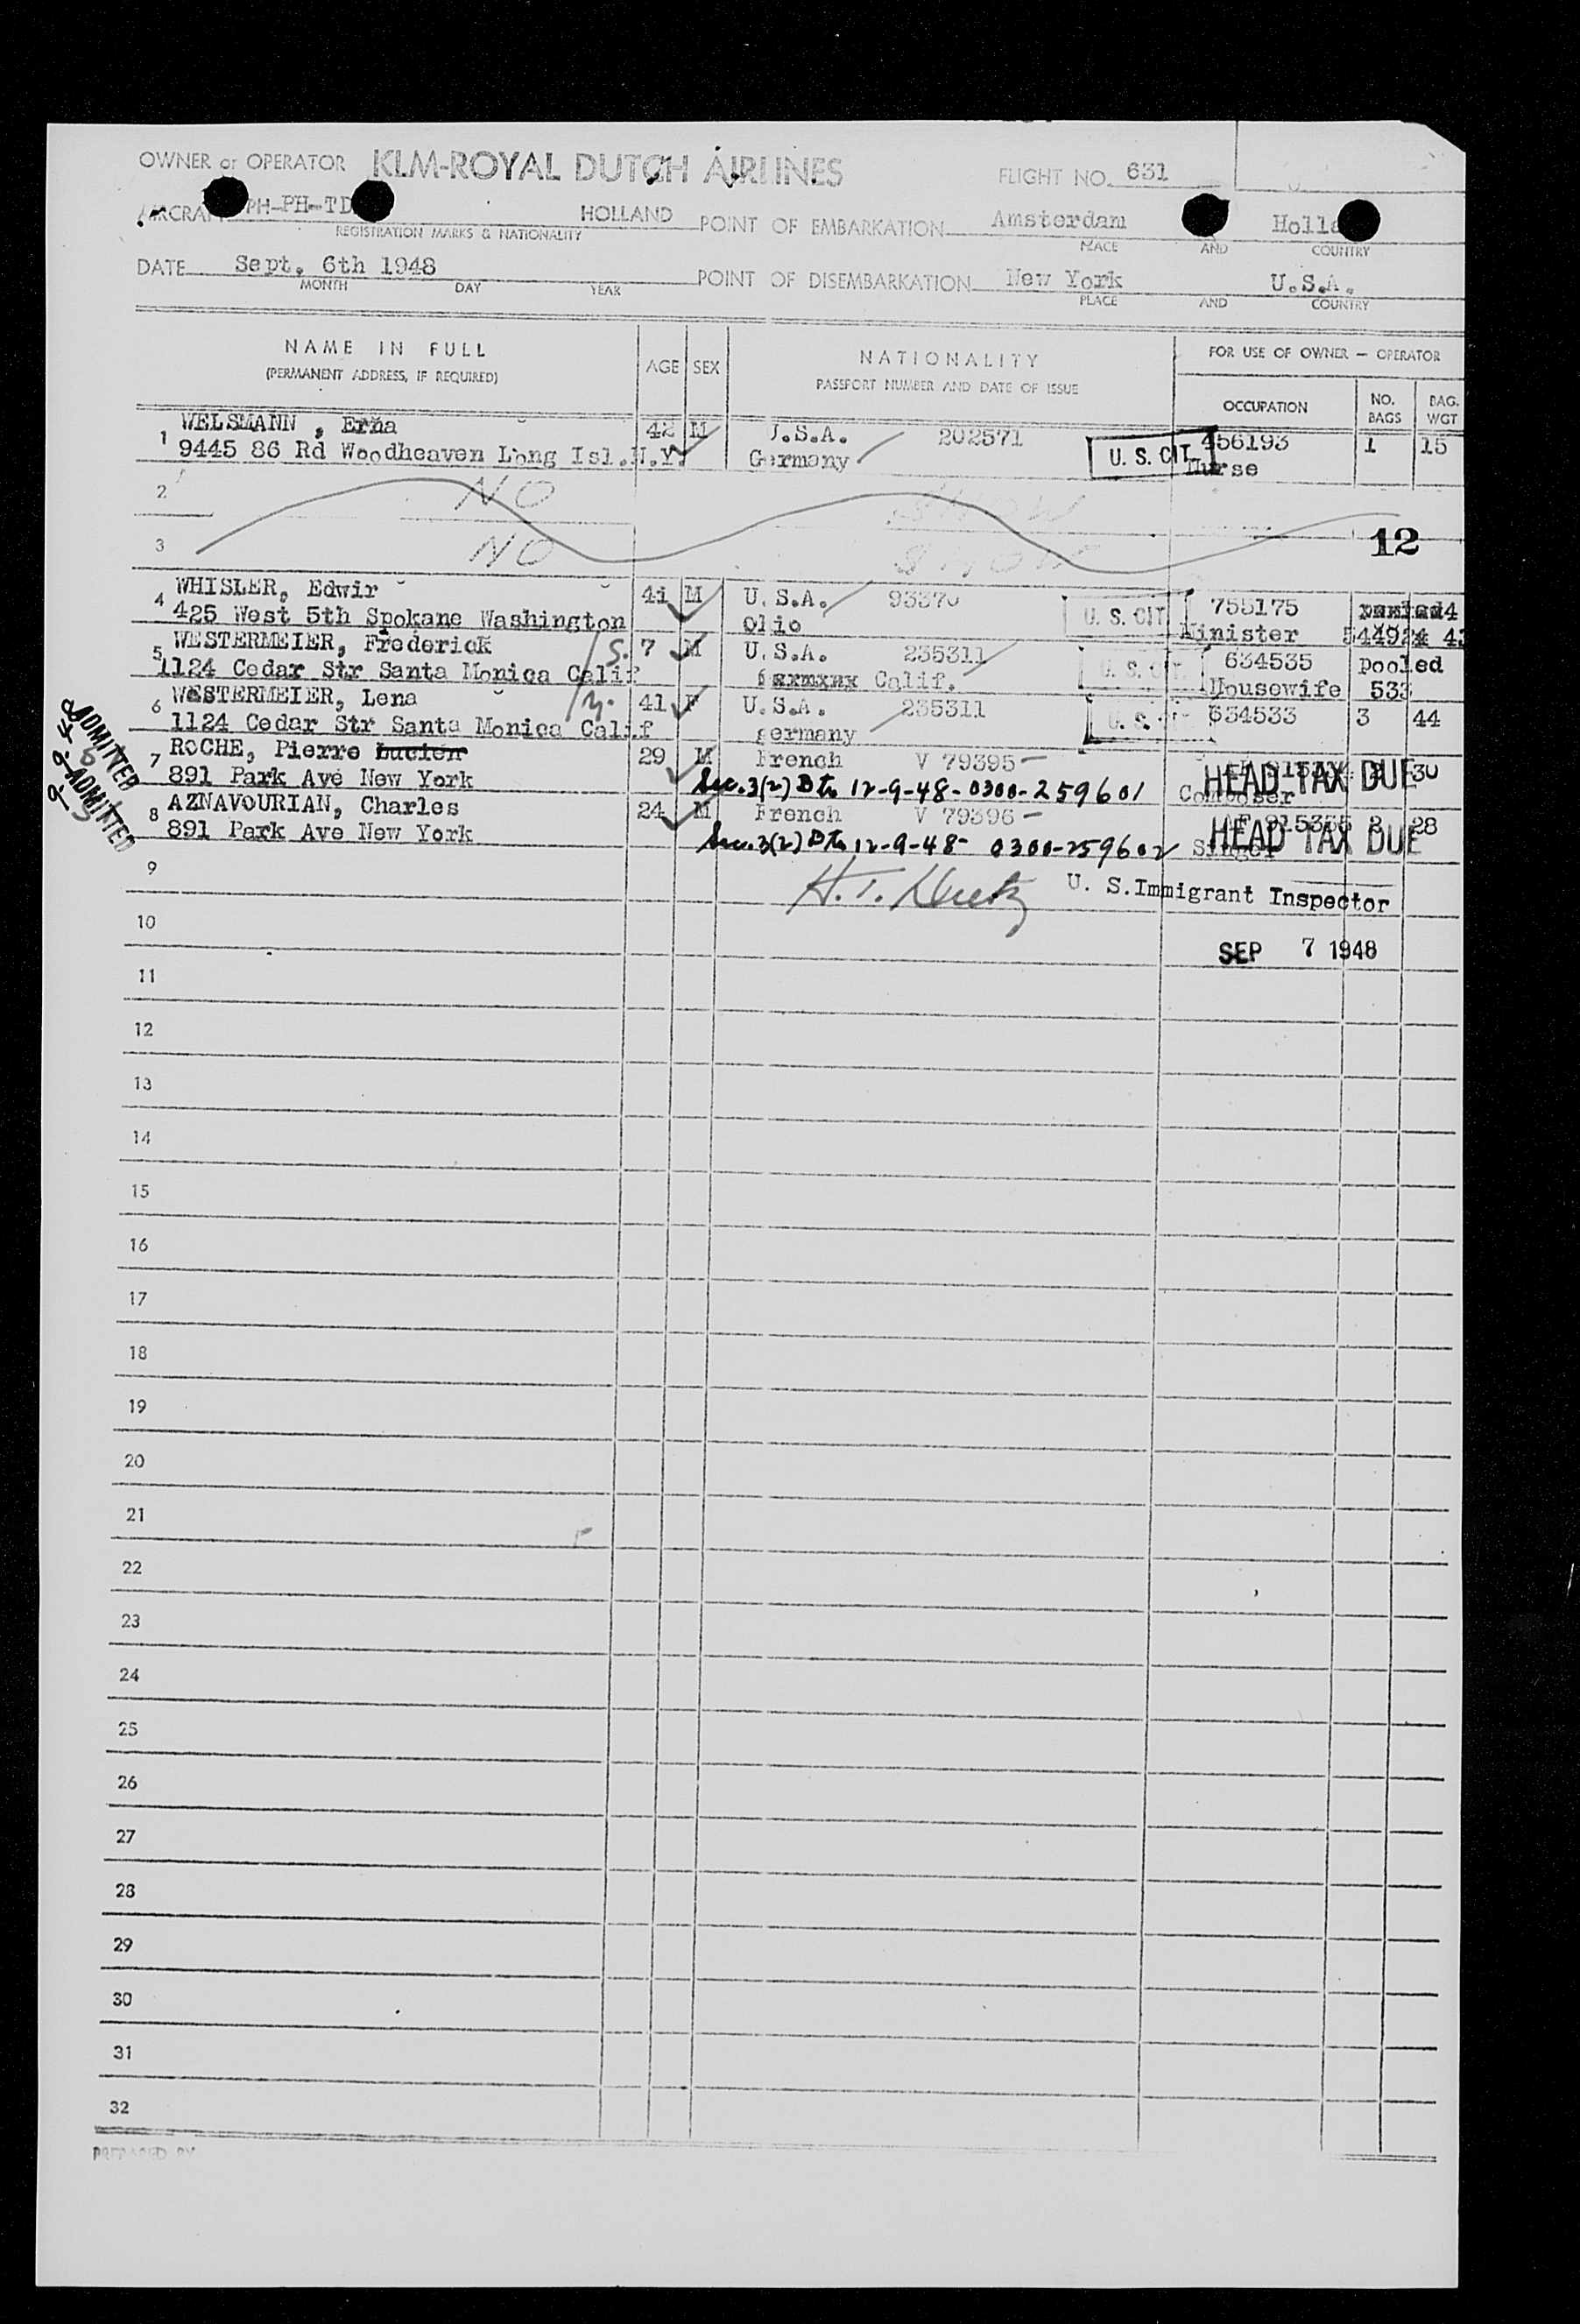 OWNER or OPERATOR KLM-ROYAL DUTCH AIRLINES FLIGHT NO. 631
PH-PH-TD HOLLAND POINT OF EMBARKATION Amsterdam
REGISTRATION MARKS & NATIONALITY PLACE AND COUNTRY
DATE Sept. 6th 1948 POINT OF DISEMBARKATION New York U.S.A.
MONTH DAY YEAR PLACE AND COUNTRY
NAME IN FULL AGE SEX NATIONALITY FOR USE OF OWNER — OPERATOR
(PERMANENT ADDRESS, IF REQUIRED) PASSPORT NUMBER AND DATE OF ISSUE
OCCUPATION NO. BAGS BAG. WGT
1 WELSMANN , Erna 42 M U.S.A. 202571 456193 1 15
9445 86 Rd Woodheaven Long Isl.N.Y. Germany U. S. CIT. Nurse
2 NO SHOW
3 NO SHOW 12
4 WHISLER, Edwir 41 M U.S.A. 93370 U. S. CIT. 755175
425 West 5th Spokane Washington Olio Minister
5 WESTERMEIER, Frederick S. 7 M U.S.A. 235311 U. S. CIT. 634535 pooled
1124 Cedar Str Santa Monica Calif Calif. Housewife 533
6 WESTERMEIER, Lena M. 41 F U.S.A. 235311 634533 3 44
1124 Cedar Str Santa Monica Calif germany
7 ROCHE, Pierre Lucien 29 M French V 79395 HEAD TAX DUE 30
891 Park Ave New York Sec.3(2) B to 12-9-48-0300-259601 Composer
8 AZNAVOURIAN, Charles 24 M French V 79396 915355 28
891 Park Ave New York Sec.3(2) B to 12-9-48- 0300-259602 Singer HEAD TAX DUE
ADMITTED
ADMITTED
9 U. S. Immigrant Inspector
10 SEP 7 1948
11
12
13
14
15
16
17
18
19
20
21
22
23
24
25
26
27
28
29
30
31
32
PREPARED BY